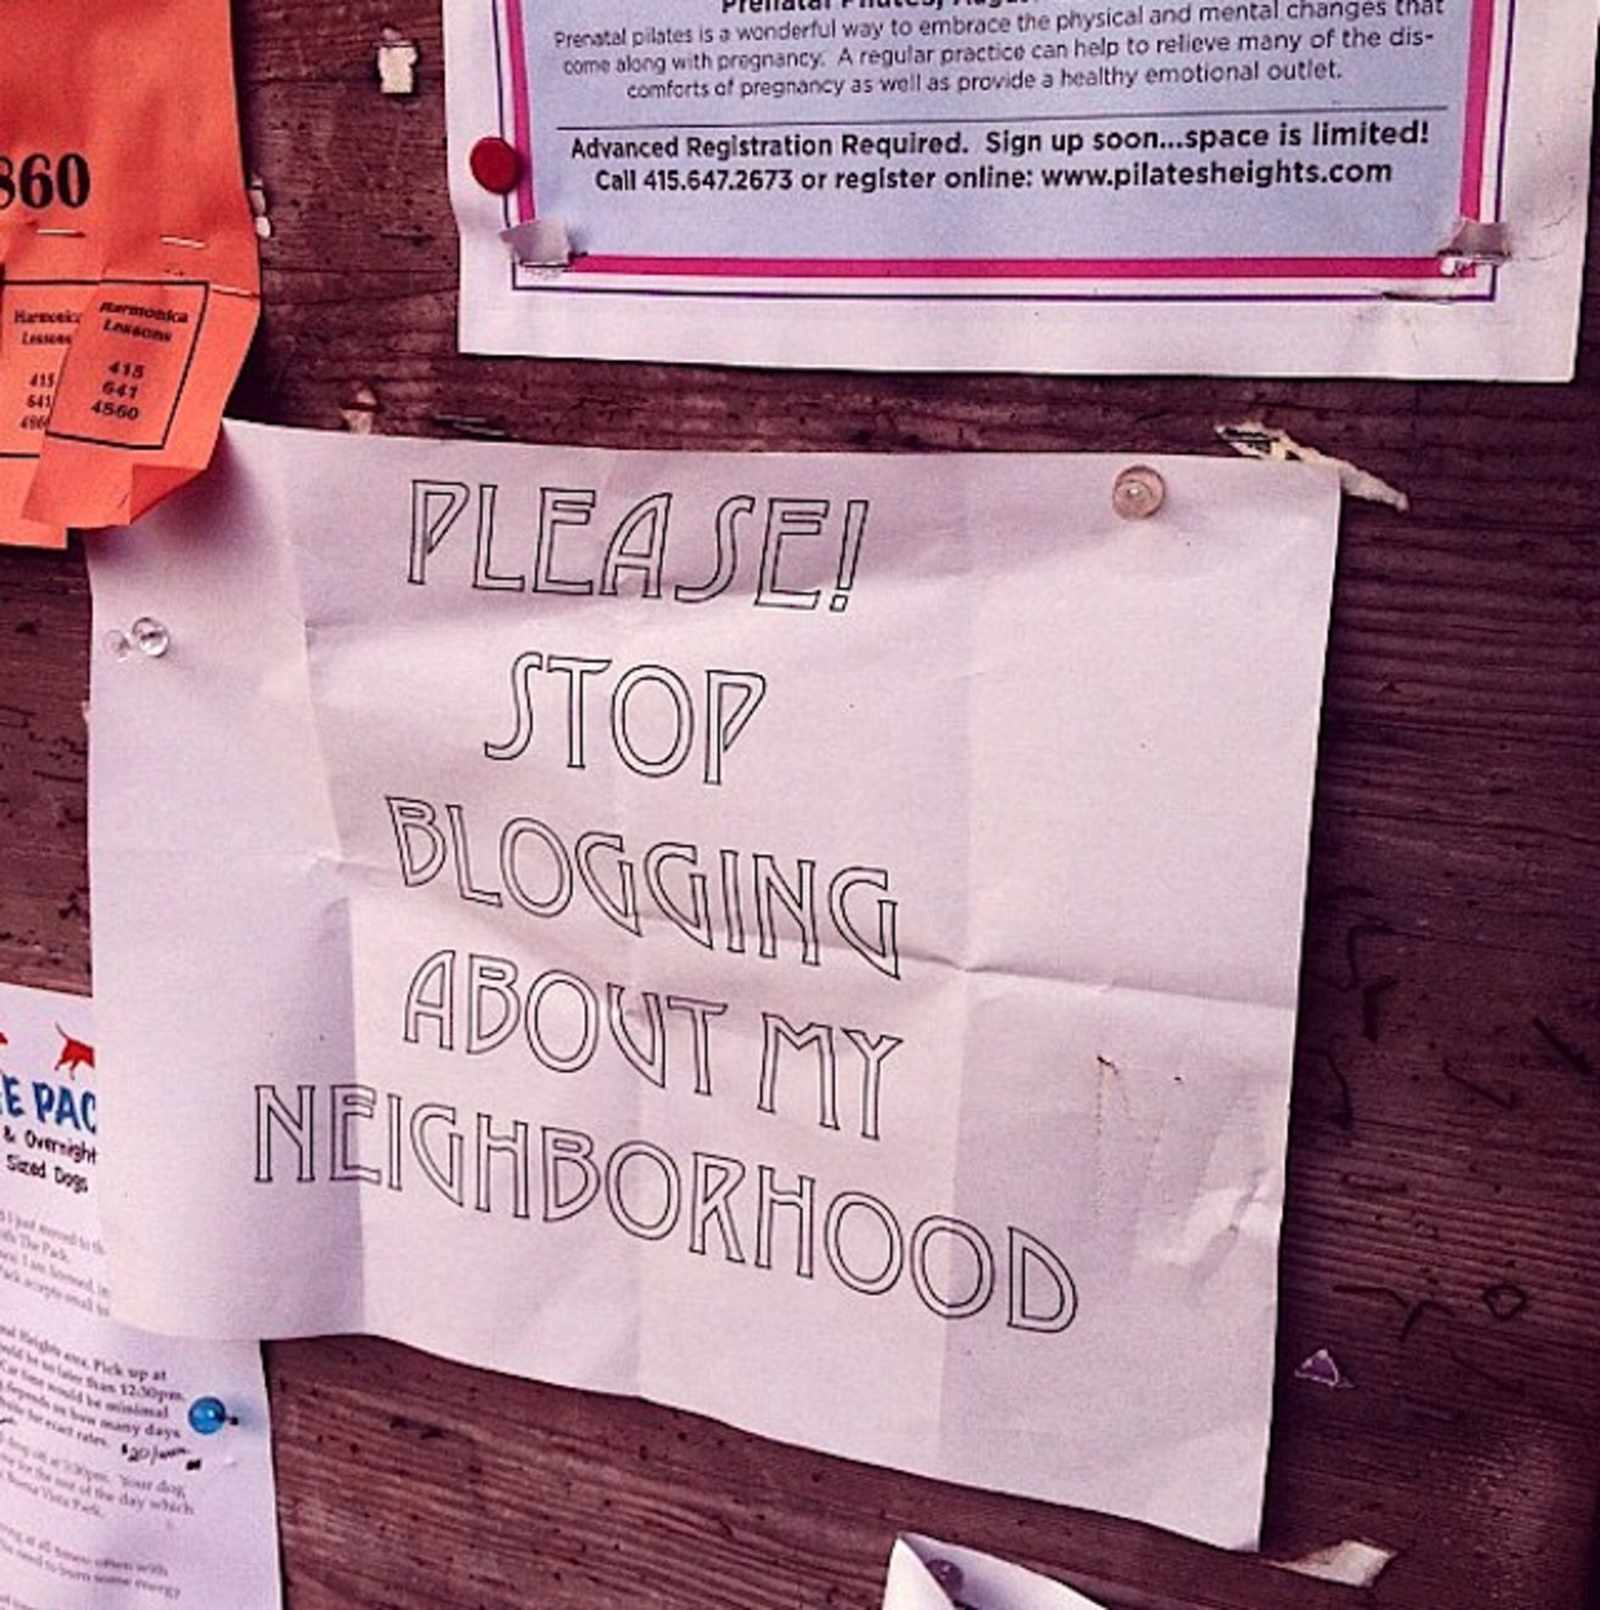 Prenatal pilates is a wonderful way to embrace the physical and mental changes that
come along with pregnancy. A regular practice can help to relieve many of the dis-
comforts of pregnancy as well as provide a healthy emotional outlet.
Advanced Registration Required. Sign up soon...space is limited!
Call 415.647.2673 or register online: www.pilatesheights.com
860
Harmonica
Lessons
415
641
Harmonica
Lessons
415
641
4860
PLEASE!
STOP
BLOGGING
ABOUT MY
NEIGHBORHOOD
E PAC
& Overnight
Sized Dogs
I just moved to th
The Park.
Heights area. Pick up at
no later than 12:30pm.
time would be minimal
depends on how many days
for exact rates. $20/
Your dog
for the rest of the day which
Buena Vista Park.
at all times often with
need to burn some energy